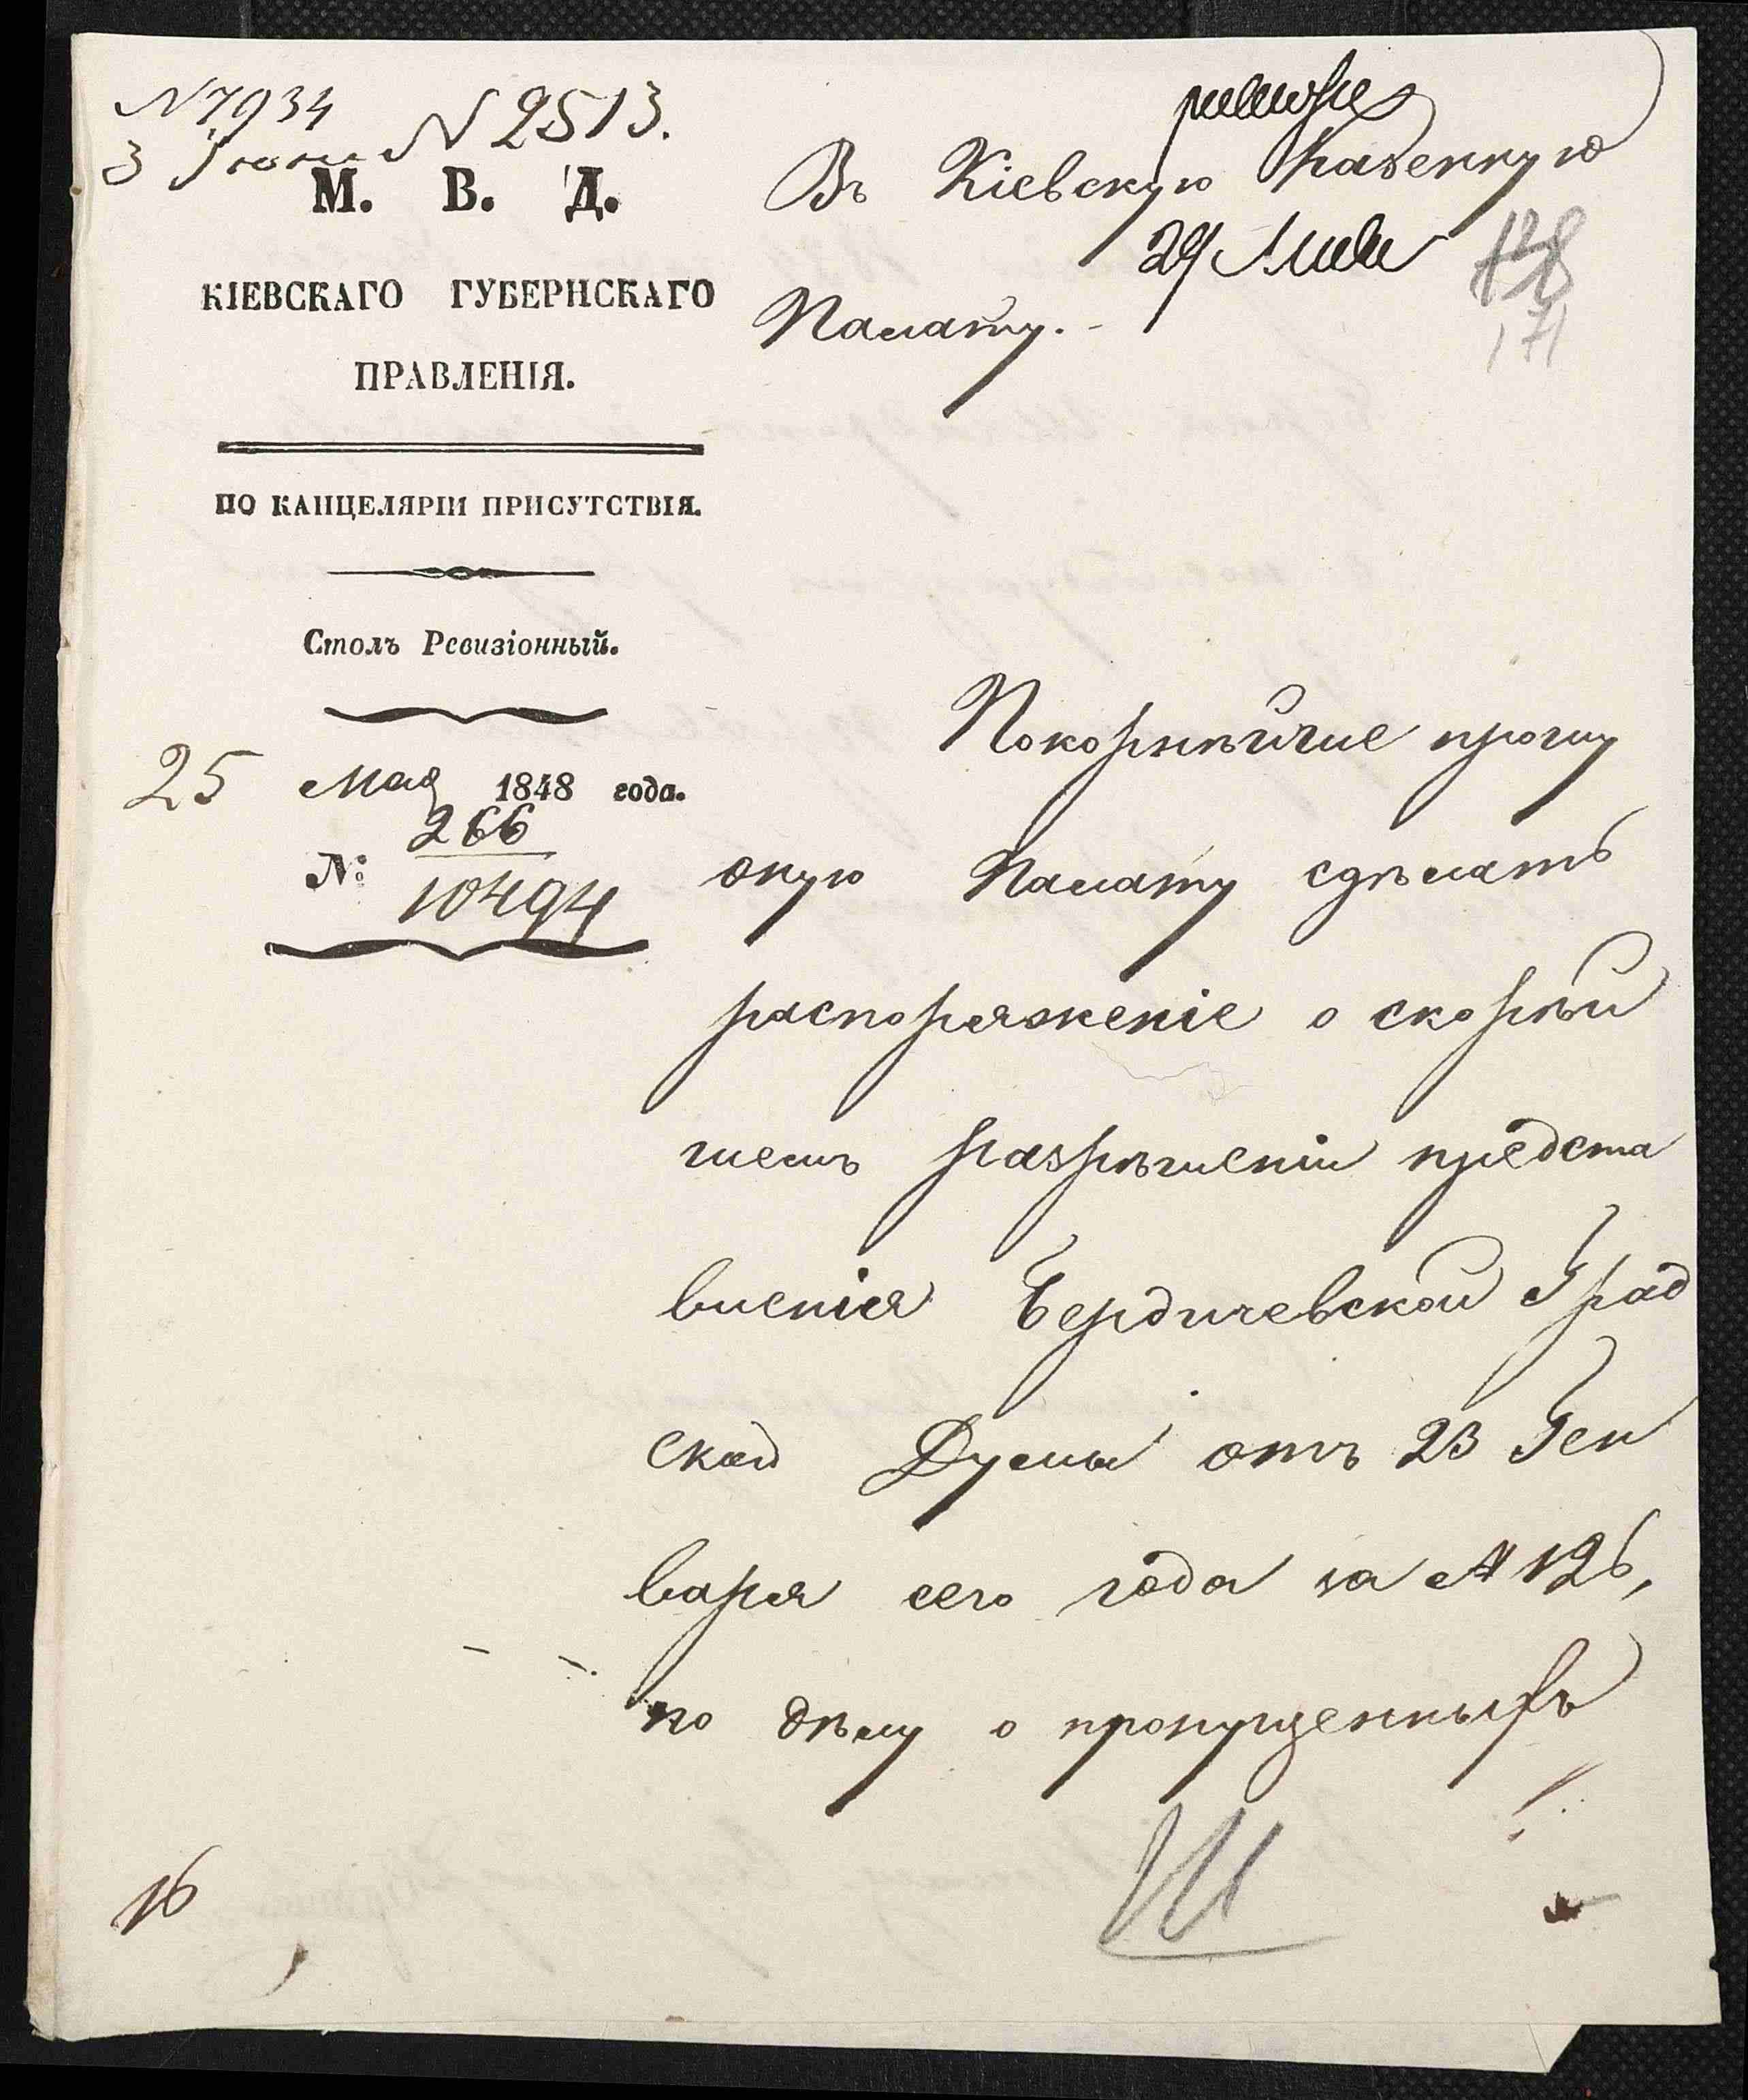 N 7934
3 Іюня N 2513.
М. В. Д.
КІЕВСКАГО ГУБЕРНСКАГО
ПРАВЛЕНІЯ.
ПО КАНЦЕЛЯРІИ ПРИСУТСТВІЯ.
Столъ Ревизіонный.
25 Мая 1848 года.
№ 266
10494
Въ Кіевскую Казенную
29 Мая
Палату.
128
171
Покорнѣйше прошу
оную Палату сдѣлать
распоряженіе о скорѣй
шемъ разрѣшеніи предста
вленія Бердичевской Град
ской Думы отъ 23 Ген
варя сего года за № 126,
по дѣлу о пропущенныхъ
16